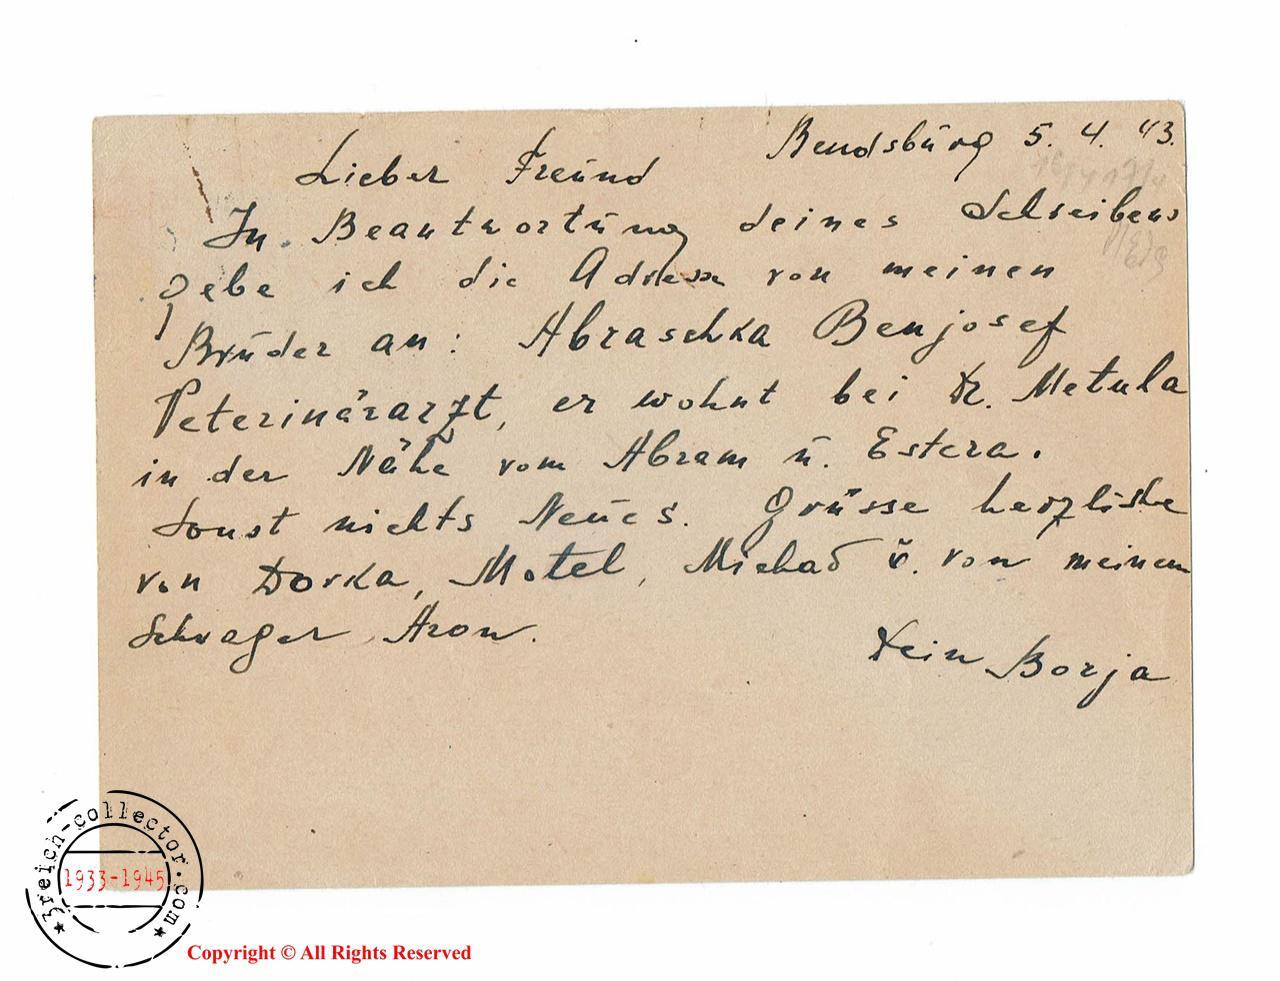 Bendsburg 5. 4. 43.
Lieber Freund
In Beantwortung deines Schreibens
gebe ich die Adresse von meinen
Brüder an: Abraschka Benjosef
Veterinärarzt, er wohnt bei Dr. Metula
in der Nähe vom Abram u. Estera.
Sonst nichts Neues. Grüsse herzliche
von Dorka, Motel, u. von meinem
Schwager Aron.
Dein Borja
3reich-collector.com
1933-1945
Copyright © All Rights Reserved